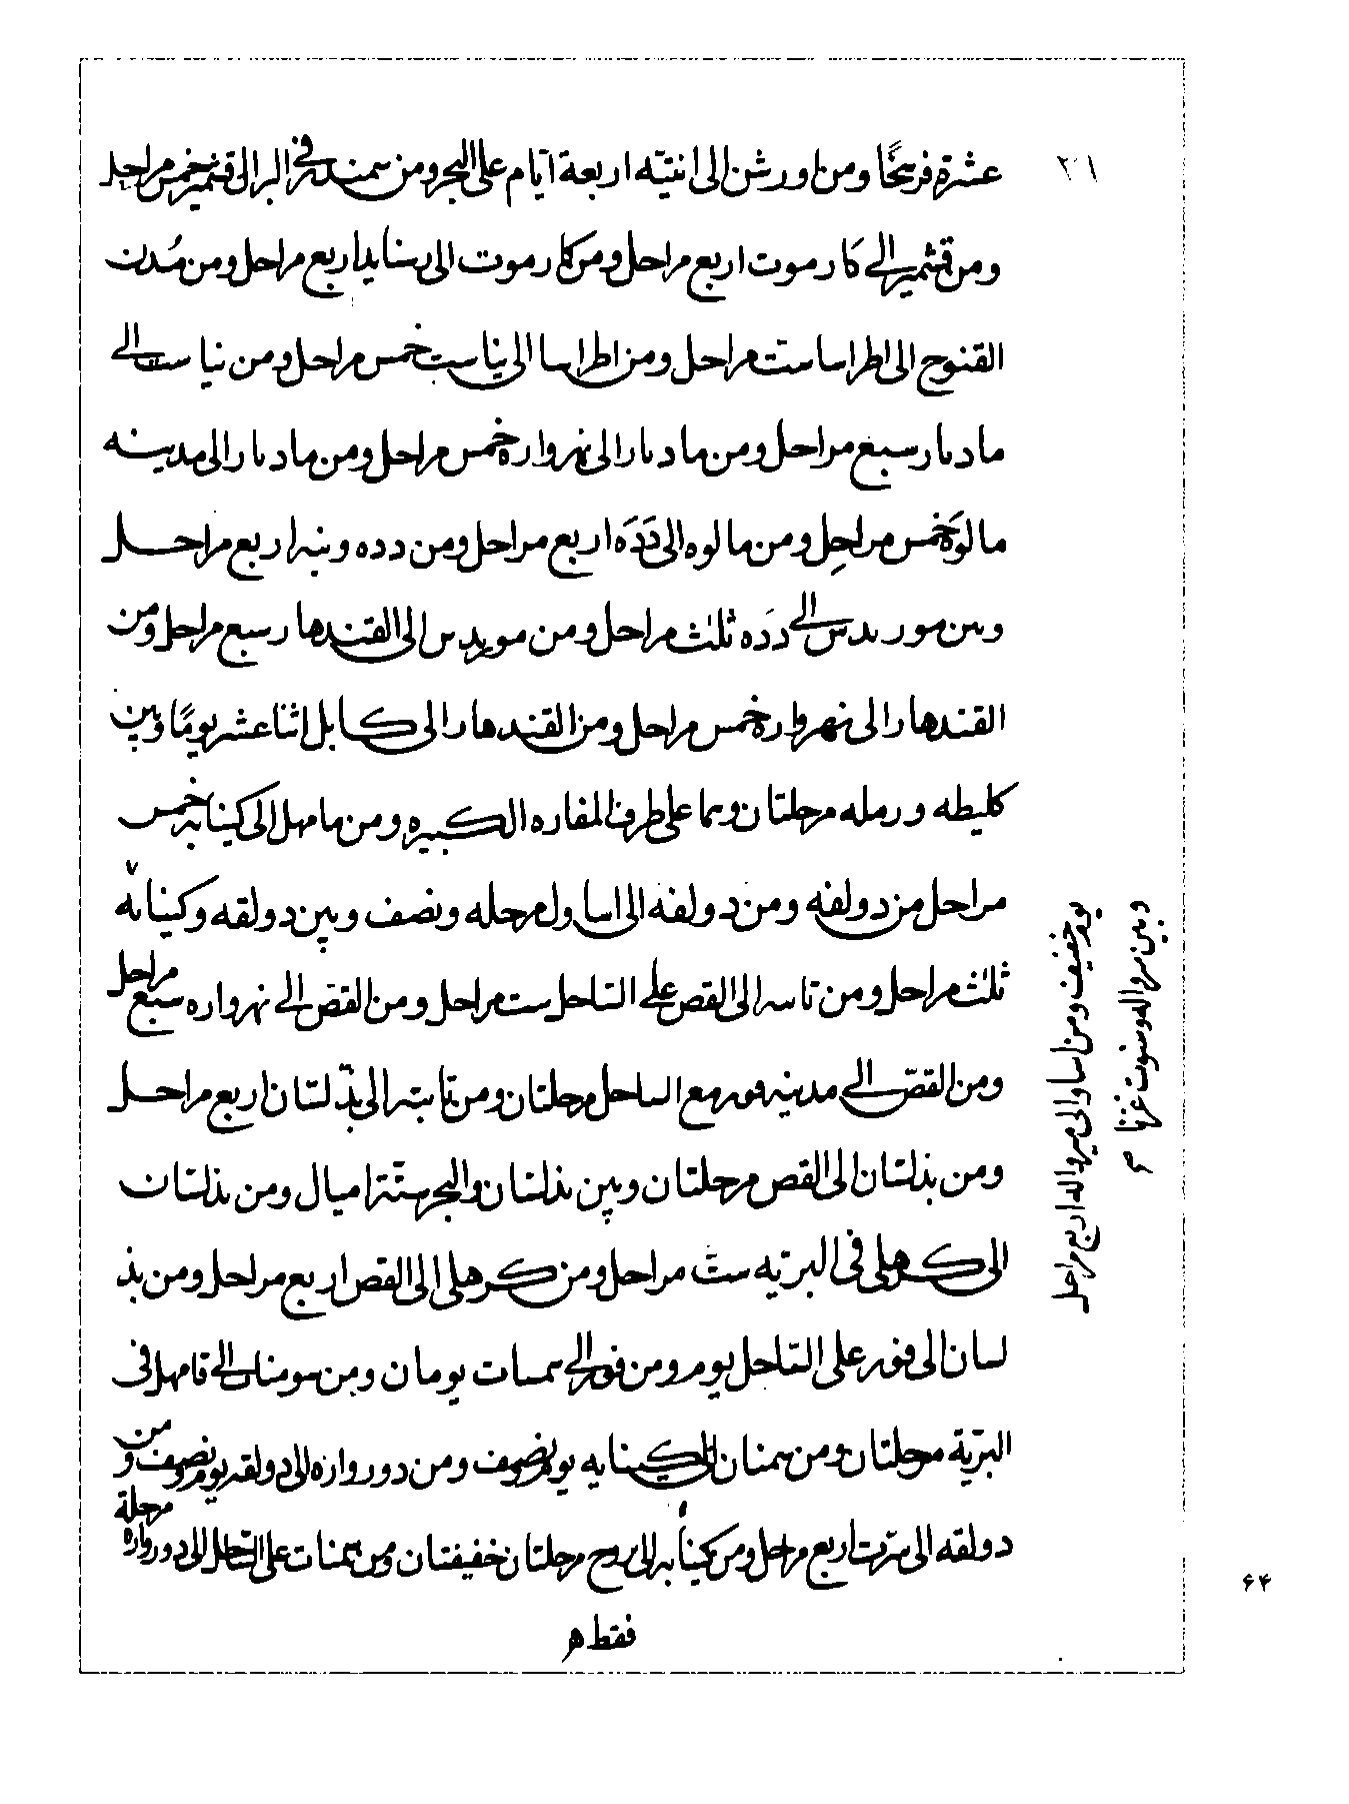 ٢٠١
عشرة فرسخًا ومن اورشن الى انتيّه اربعة ايّام على البحر ومن سمندر في البر الى قشمير خمس مراحل
ومن قشمير الى كارموت اربع مراحل ومن كارموت الى اربع مراحل ومن مُدن
القنوج الى اطراسا ستّ مراحل ومن اطراسا الى نياست خمس مراحل ومن نياست الى
مادىار سبع مراحل ومن مادىار الى نهرواره خمس مراحل ومن مادىار الى مدينه
مالوَه خمس مراحِل ومن مالوه الى دَدَه اربع مراحل ومن دده وتنه اربع مراحل
وبىن مورىدس الى ددَه ثلٰث مراحل ومن مورىدس الى القندهار سبع مراحل ومن
القندهار الى نهرواره خمس مراحل ومن القندهار الى كابل اثنا عشر يومًا وبين
كليطه ورمله مرحلتان وىىما على طرف المفاره الكبيره ومن مامهل الى كينايه خمس
مراحل من دولفه ومن دولفه الى اساول مرحله ونصف وبين دولقه وكنىاىه
ثلٰث مراحل ومن تاىىه الى القص على السّاحل ست مراحل ومن القص الى نهرواره سبع مراحل
ومن القصّ الى مدىنه فور مع الساحل مرحلتان ومن تابته الى بذلتان اربع مراحل
ومن بذلتان الى القص مرحلتان وبين بذلتان والبحر ستّة اميال ومن بذلتان
الى كرهلى فى البريّه ستّ مراحل ومن كرهلى الى القص اربع مراحل ومن بذ
لسان الى فور على السّاحل يوم ومن فور الى سمسات يومان ومن سومنات الى قامهل فى
البرّية مرحلتان ومن سمنان الى كينايه يوم ونصف ومن دورواره الى دولقه يوم ونصف ومن
دولقه الى اربع مراحل ومن كينايه الى بروح مرحلتان خفيفتان ومن سمنات على السّاحل الى دورواره مرحلة
فقط
يوم خفيف ومن اساول الى سرواله اربع مراحل
وبين سرواله غزنا
۶۴